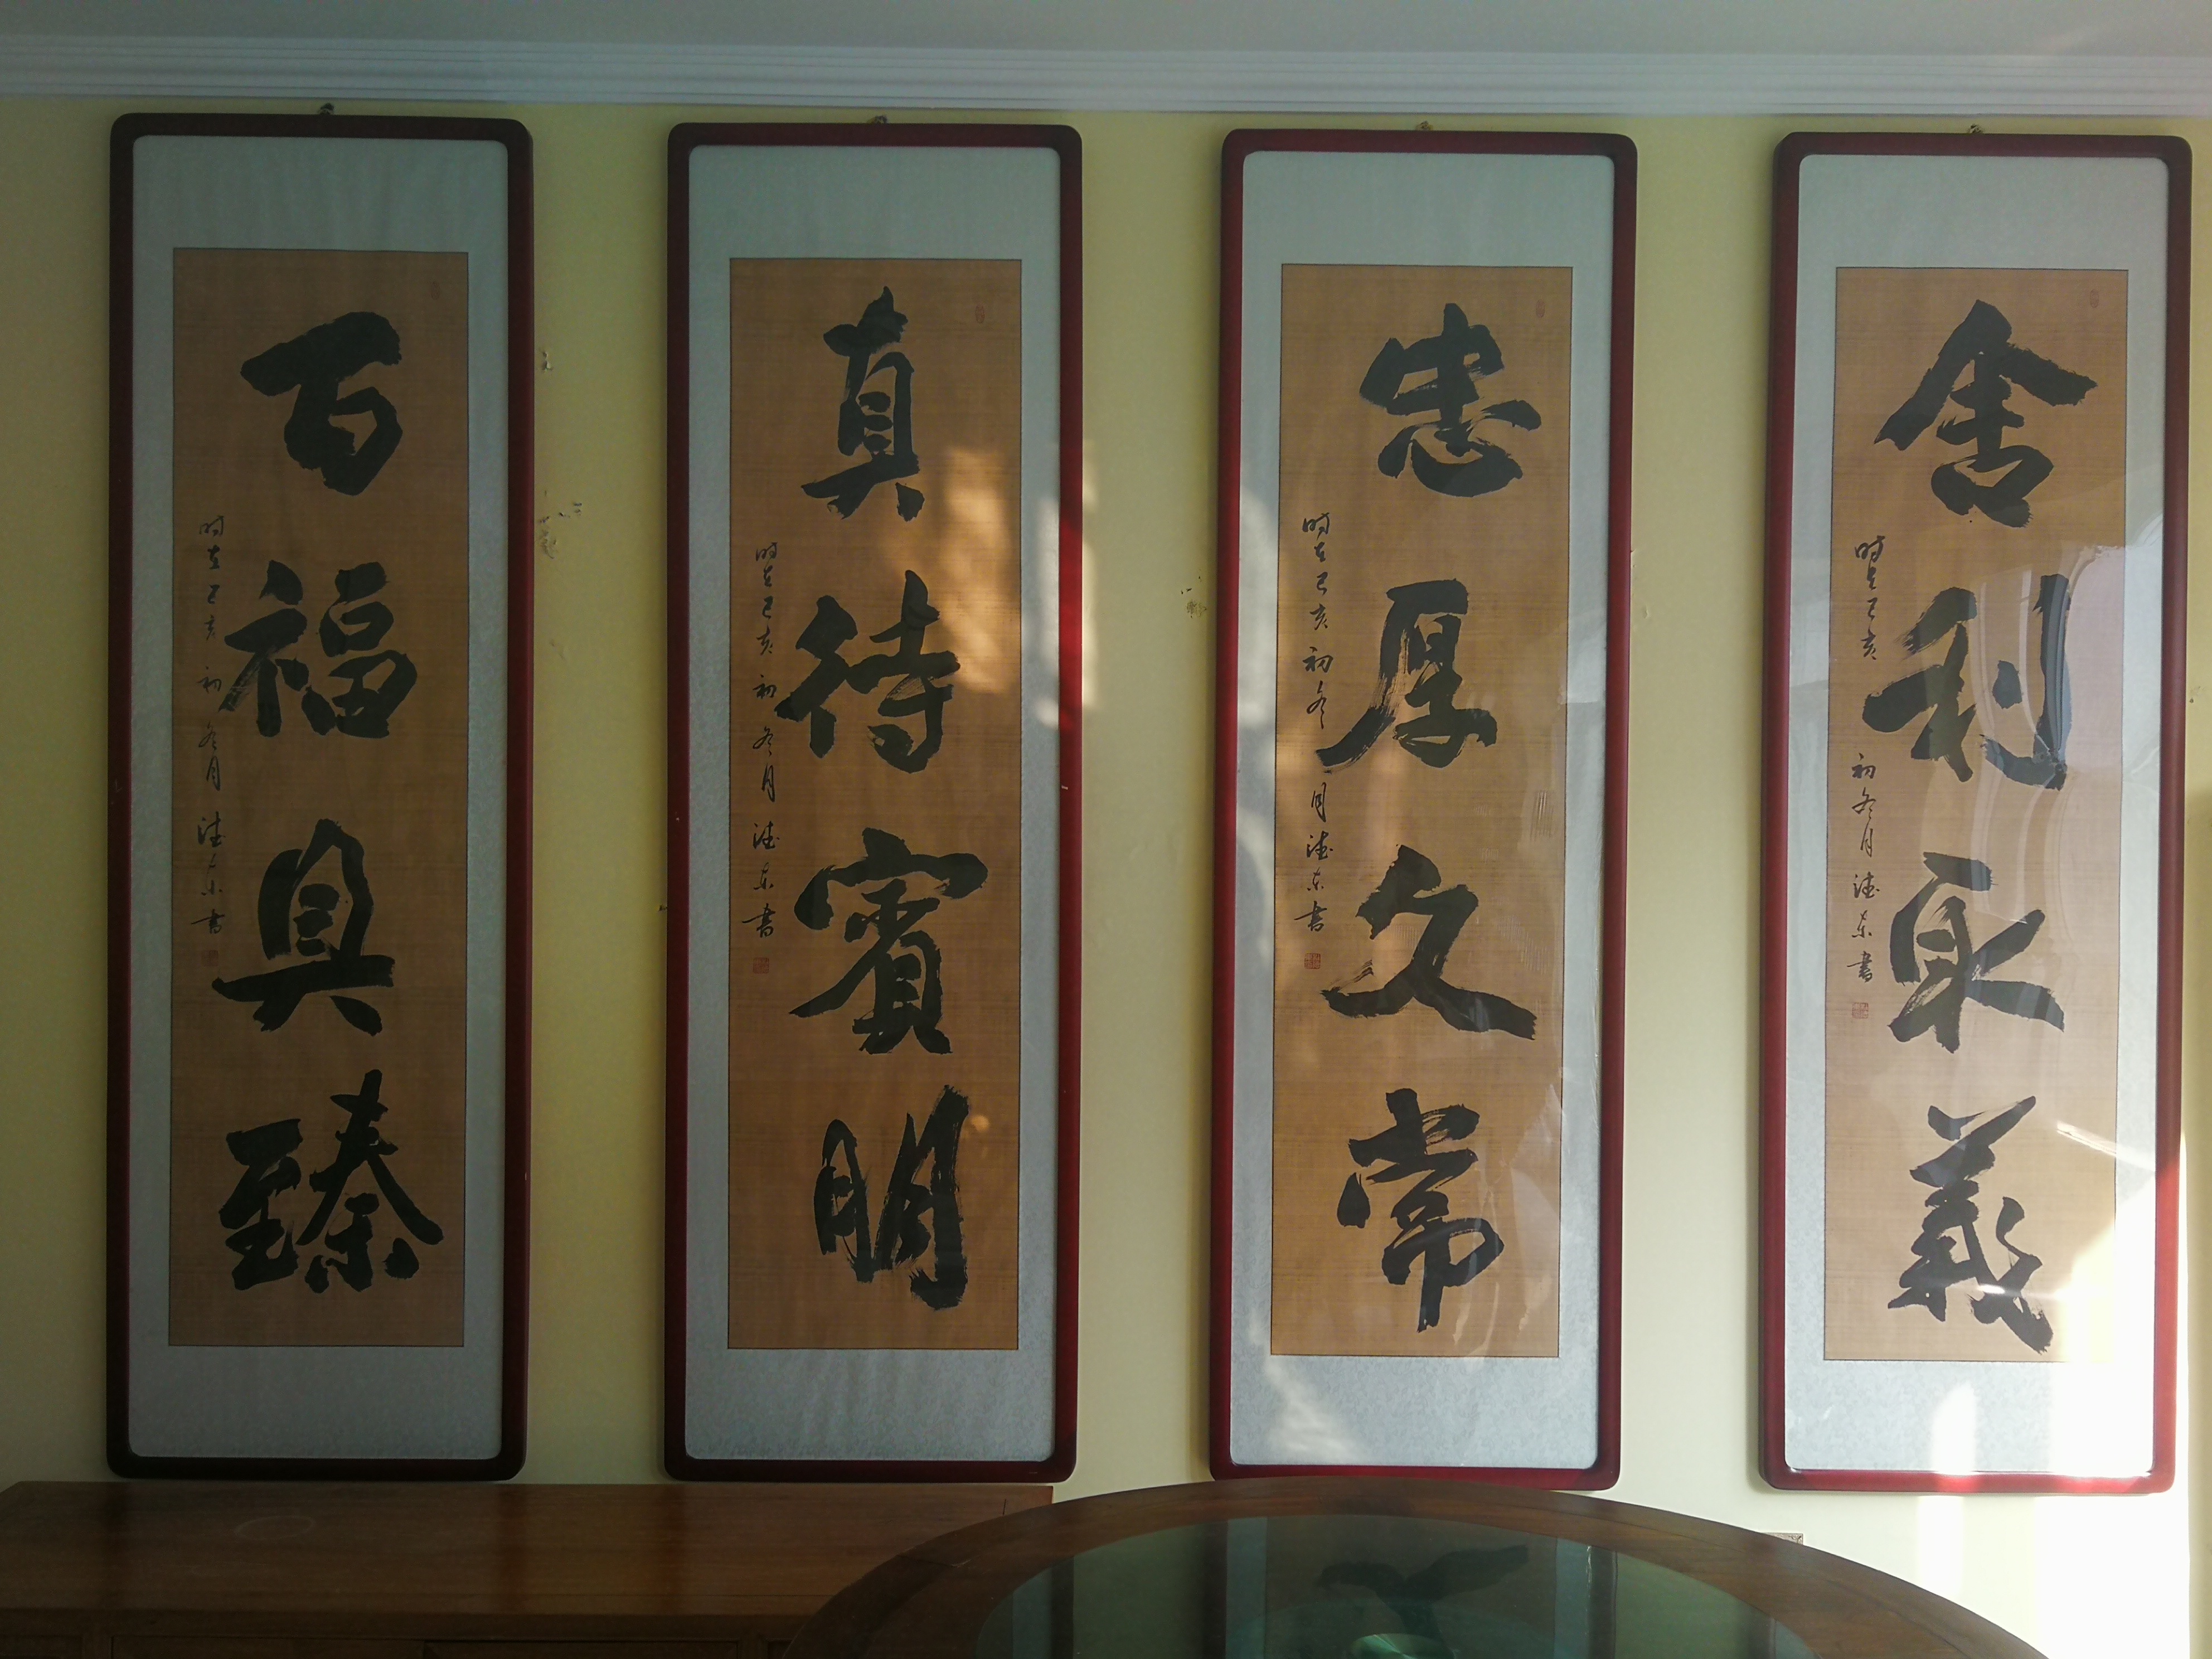 舍利取義
時在己亥初冬月德东書
忠厚久常
時在己亥初冬月德东書
真待賓朋
時在己亥初冬月德东書
百福具臻
時在己亥初冬月德东書